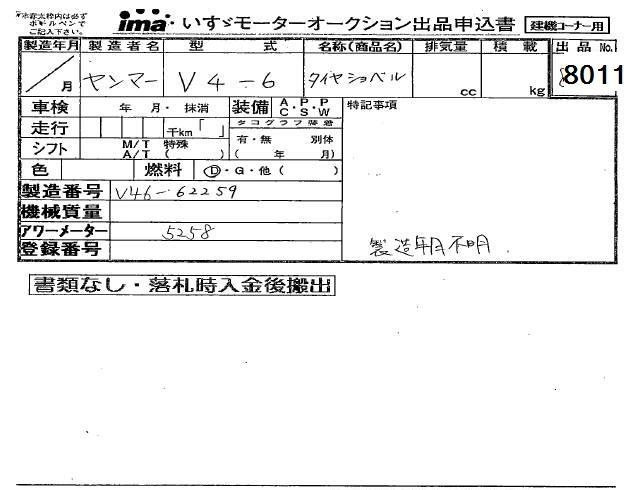 ※赤太枠内は必ず
ボールペンで
ご記入下さい。
ima いすゞモーターオークション出品申込書 建機コーナー用
製造年月 製造者名 型式 名称(商品名) 排気量 積載 出品No.
／月 ヤンマー V4-6 タイヤショベル cc kg 8011
車検 年 月・抹消 装備 A・P・P C・S・W 特記事項
走行 千km「 」 タコグラフ装着
シフト M/T 特殊 有・無 別体
A/T ( ) ( 年 月)
色 燃料 Ⓓ・G・他 ( )
製造番号 V46-62259
機械質量
アワーメーター 5258
登録番号 製造年月不明
書類なし・落札時入金後搬出